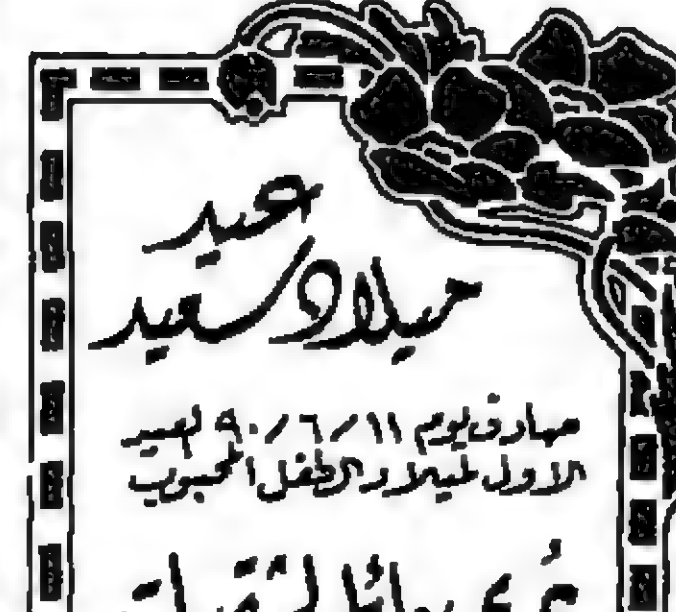 عيد
ميلاد سعيد
يصادف يوم ١١/٦/٩٠ العيد
الاول لميلاد الطفل المحبوب